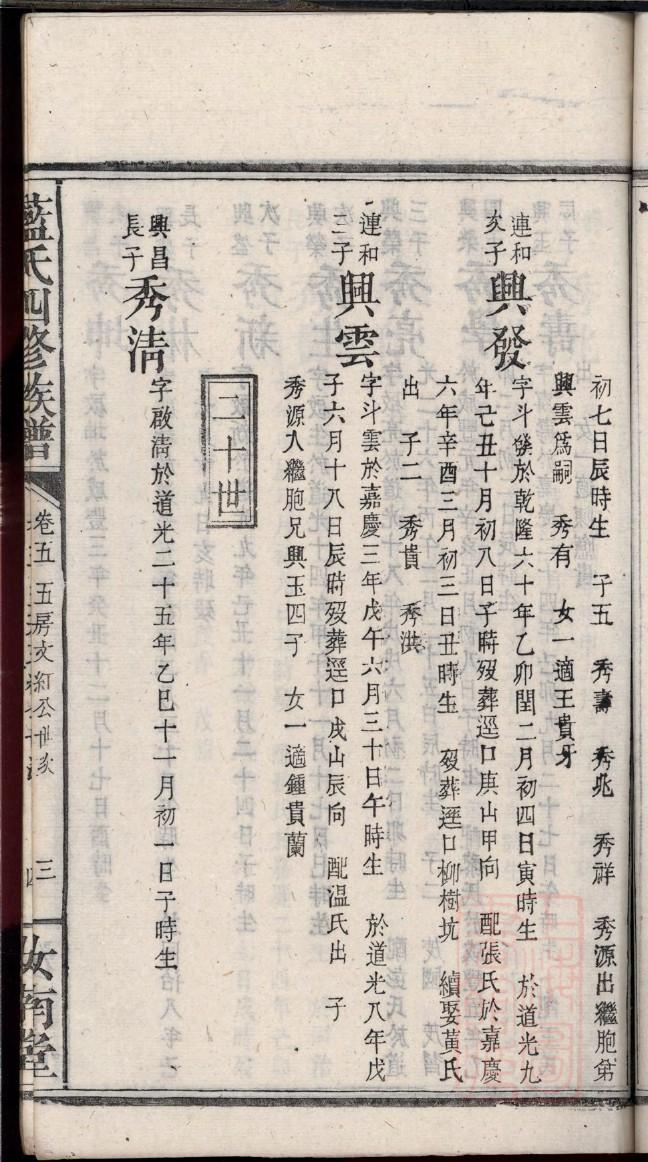 初七日辰時生　子五　秀壽　秀兆　秀祥　秀源出繼胞弟
興雲爲嗣　秀有　女一適王貴牙
連和
次子
興發
字斗發於乾隆六十年乙卯閏二月初四日寅時生　於道光九
年己丑十月初八日子時歿葬逕口庚山甲向　配張氏於嘉慶
六年辛酉三月初三日丑時生　歿葬逕口柳樹坑　續娶黃氏
出　子二　秀貴　秀洪
連和
三子
興雲
字斗雲於嘉慶三年戊午六月三十日午時生　於道光八年戊
子六月十八日辰時歿葬逕口戌山辰向　配溫氏出　子
秀源入繼胞兄興玉四子　女一適鍾貴蘭
二十世
興昌
長子
秀清
字啟清於道光二十五年乙巳十一月初一日子時生
藍氏四修族譜
卷五　五房文紅公世次
三
汝南堂